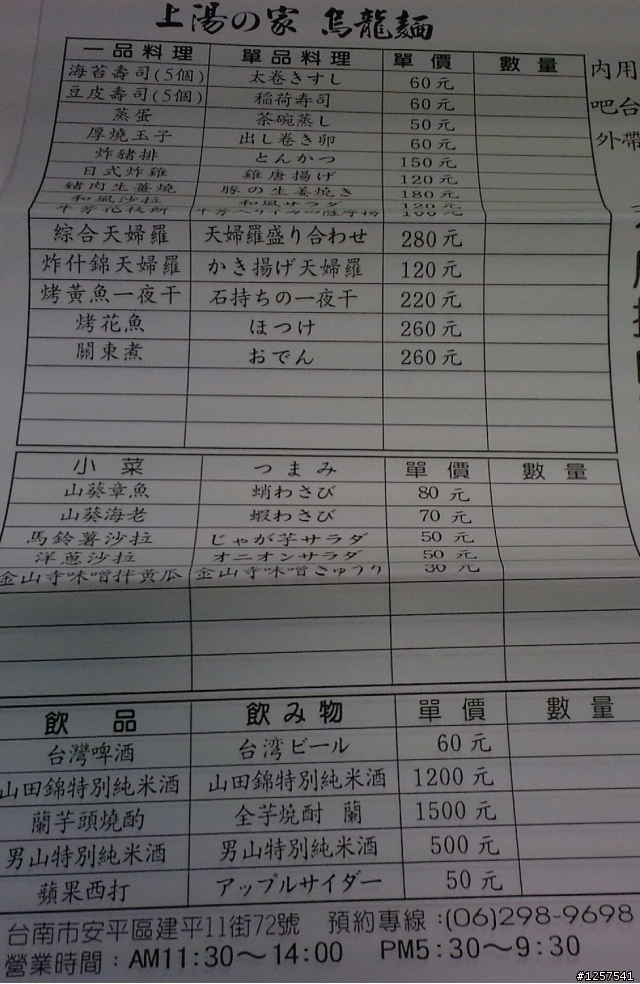 上湯の家 烏龍麵
一品料理 單品料理 單價 數量
海苔壽司(5個) 太卷きすし 60元
豆皮壽司(5個) 稲荷寿司 60元
蒸蛋 茶碗蒸し 50元
厚燒玉子 出し巻き卵 60元
炸豬排 とんかつ 150元
日式炸雞 雞唐揚げ 120元
豬肉生薑燒 豚の生姜焼き 180元
和風沙拉 和風サラダ 120元
100元
綜合天婦羅 天婦羅盛り合わせ 280元
炸什錦天婦羅 かき揚げ天婦羅 120元
烤黃魚一夜干 石持ちの一夜干 220元
烤花魚 ほつけ 260元
關東煮 おでん 260元
小菜 つまみ 單價 數量
山葵章魚 蛸わさび 80元
山葵海老 蝦わさび 70元
馬鈴薯沙拉 じゃが芋サラダ 50元
洋蔥沙拉 オニオンサラダ 50元
金山寺味噌拌黃瓜 金山寺味噌きゅうり 30元
飲品 飲み物 單價 數量
台灣啤酒 台湾ビール 60元
山田錦特別純米酒 山田錦特別純米酒 1200元
蘭芋頭燒酌 全芋焼酎 蘭 1500元
男山特別純米酒 男山特別純米酒 500元
蘋果西打 アップルサイダー 50元
台南市安平區建平11街72號 預約專線:(06)298-9698
營業時間:AM11:30~14:00 PM5:30~9:30
內用
吧台
外帶
#1257541